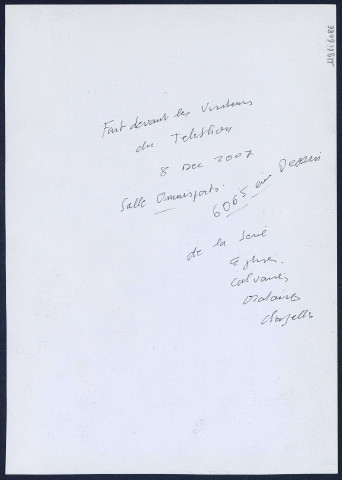 Fait devant les Visiteurs
du Telethon
8 Dec 2007
Salle Omnisports.
6065 eme Dessin
de la Serie
Eglises.
Calvaires
Oratoires
chapelles